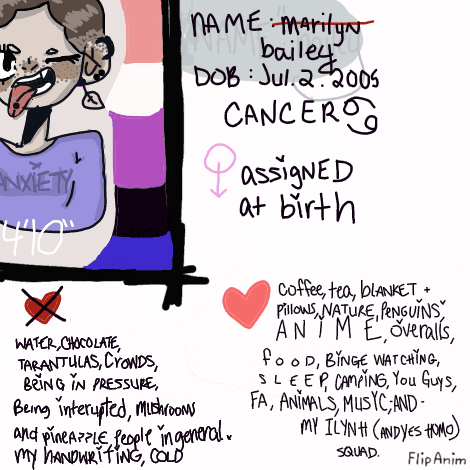 NAME: Marilyn
bailey
DOB: Jul. 2. 2005
CANCER♋
assigNED
at birth
ANXIETY
4'10"
WATER, CHOCOLATE,
TARANTULAS, CROWDS,
BEING IN PRESSURE,
Being interupted, MUSHROOMS
and pineapple, people in general.
MY HANDWRITING, COLD
coffee, tea, blANKET +
Pillows, NATURE, PENGUINS,
ANIME, Overalls,
FOOD, BINGE WATCHING,
SLEEP, CAMPING, YOU GUYS,
FA, ANIMALS, MUSYC, AND-
MY ILYNH (AND YES HOMO)
SQUAD.
FlipAnim